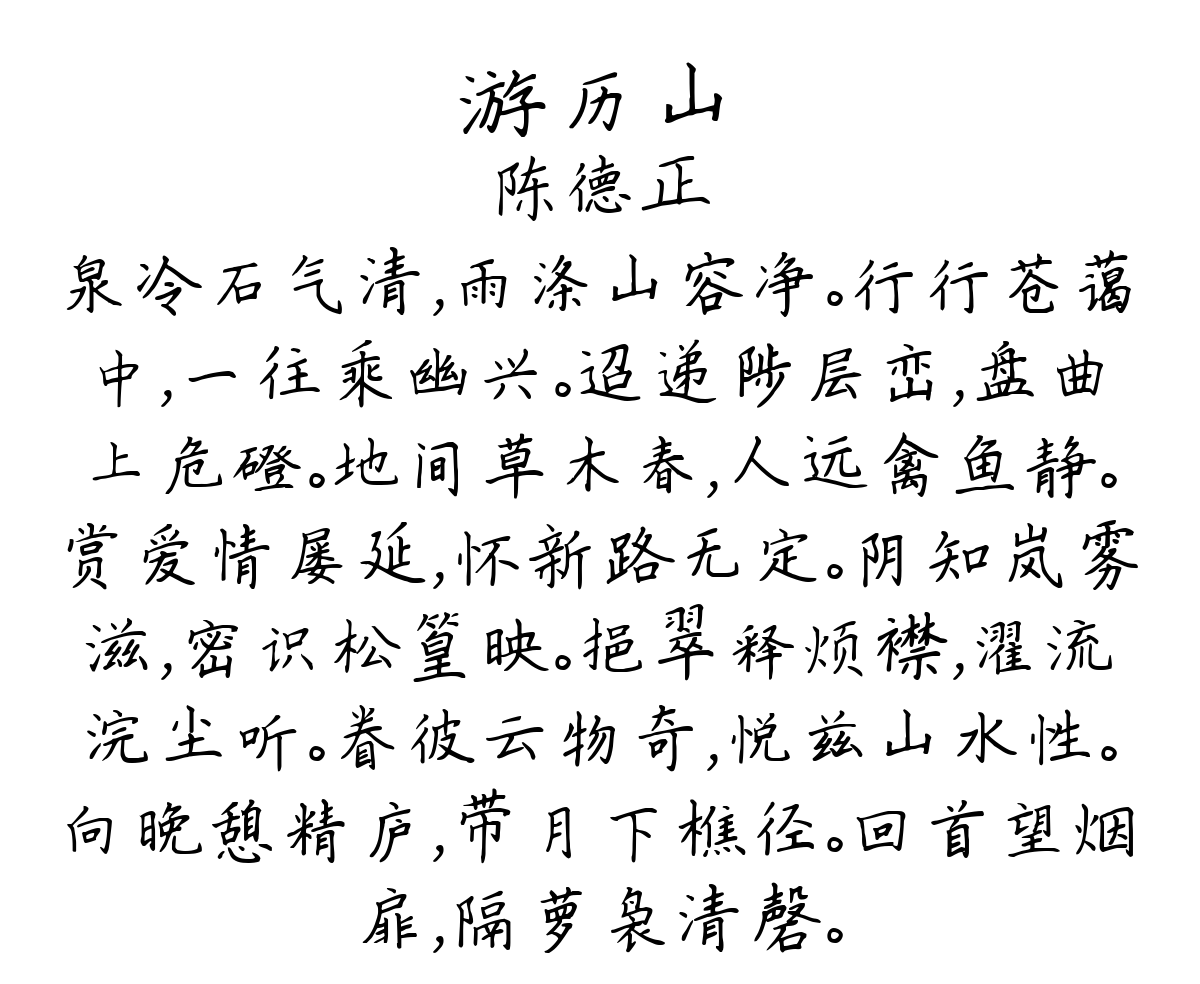 游历山
陈德正
泉冷石气清,雨涤山容净。行行苍蔼
中,一往乘幽兴。迢递陟层峦,盘曲
上危磴。地间草木春,人远禽鱼静。
赏爱情屡延,怀新路无定。阴知岚雾
滋,密识松篁映。挹翠释烦襟,濯流
浣尘听。眷彼云物奇,悦兹山水性。
向晚憩精庐,带月下樵径。回首望烟
扉,隔萝袅清磬。